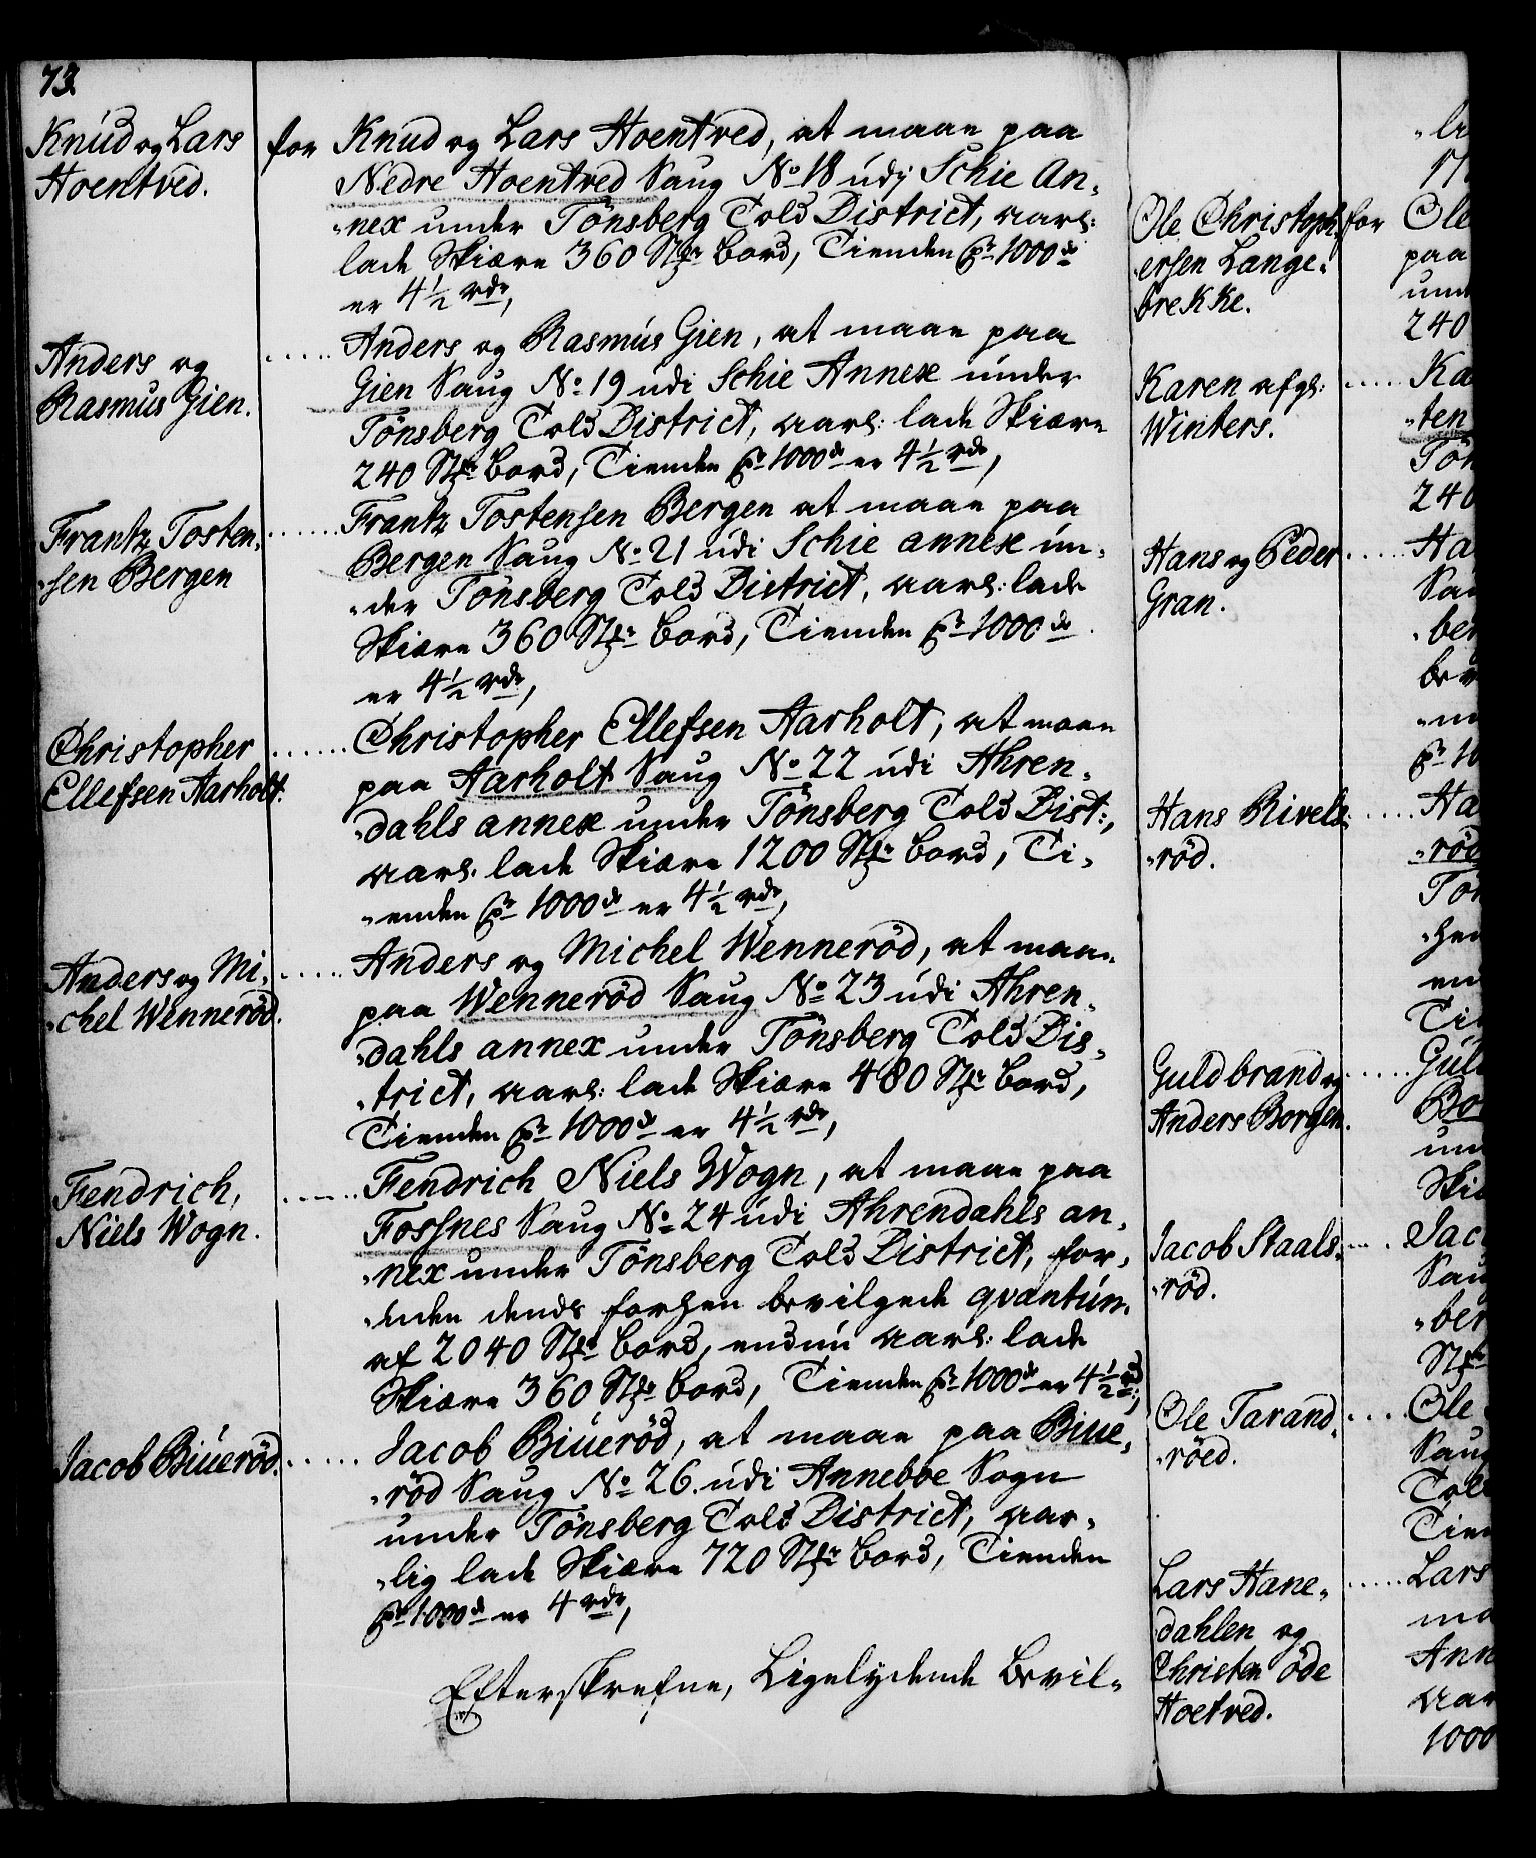 73.
Knud og Lars
Hoentved.
for Knud og Lars Hoentved, at maae paa
Nedre Hoentved Saug No 18 udj Schie An„
„nex under Tönsberg Told District, aarl:
lade Skiære 360 Stkr Bord, Tienden pr 1000 de
er 4½ rdr,
Anders og
Rasmus Gien.
..... Anders og Rasmus Gien, at maae paa
Gien Saug No 19 udi Schie Annex under
Tönsberg Told District, aarl: lade Skiære
240 Stkr Bord, Tienden pr 1000 de er 4½ rdr,
Frantz Tosten„
„sen Bergen
...... Frantz Tostensen Bergen at maae paa
Bergen Saug No 21 udi Schie annex un„
„der Tönsberg Told District, aarl: lade
Skiære 360 Stkr Bord, Tienden pr 1000 de
er 4½ rdr,
Christopher
Ellefsen Aarholt.
...... Christopher Ellefsen Aarholt, at maae
paa Aarholt Saug No 22 udi Ahren„
„dahls annex under Tönsberg Told Dist:,
aarl. lade Skiære 1200 Stkr Bord, Ti„
„enden pr 1000 de er 4½ rdr,
Anders og Mi„
„chel Wenneröd.
..... Anders og Michel Wenneröd, at maae
paa Wenneröd Saug No 23 udi Ahren„
„dahls annex under Tönsberg Told Dis„
„trict, aarl: lade Skiære 480 Stkr Bord,
Tienden pr 1000 de er 4½ rdr,
Fendrich,
Niels Wogn.
...... Fendrich Niels Wogn, at maae paa
Fossnes Saug No 24 udi Ahrendahls an„
„nex under Tönsberg Told District, for„
„uden dends forhen bevilgede qvantum
af 2040 Stkr Bord, endnu aarl: lade
Skiære 360 Stkr Bord, Tienden pr 1000 de er 4½ rd:,
Jacob Biueröd.
...... Jacob Biueröd, at maae paa Biue„
„röd Saug No 26. udi Anneboe Sogn
under Tönsberg Told District, aar„
„lig lade Skiære 720 Stkr Bord, Tienden
pr 1000 de er 4 rdr,
Efterskrefne, Ligelydende Bevil„
Ole Christoph„ for Ole
„ersen Lange„ paa
brekke.
240
Karen afgl: ..... Ka
Winters. „ten
Tön
240
Hans og Peder ..... Ha
Gran. Sau
„ber
Hans Rivels„ ..... Ha
„röd. „röd
Tön
Guldbrand og ..... Gul
Anders Borgen. Bo
Skiæ
Jacob Staals„ .... Jac
„röd. Sau
„ber
Stkr
Ole Tarand„ .... Ole
„röed. Saug
Told
Tien
Lars Hane„ ..... Lars
dahlen og ma
Christen öde Ann
Hoetved. aar
1000